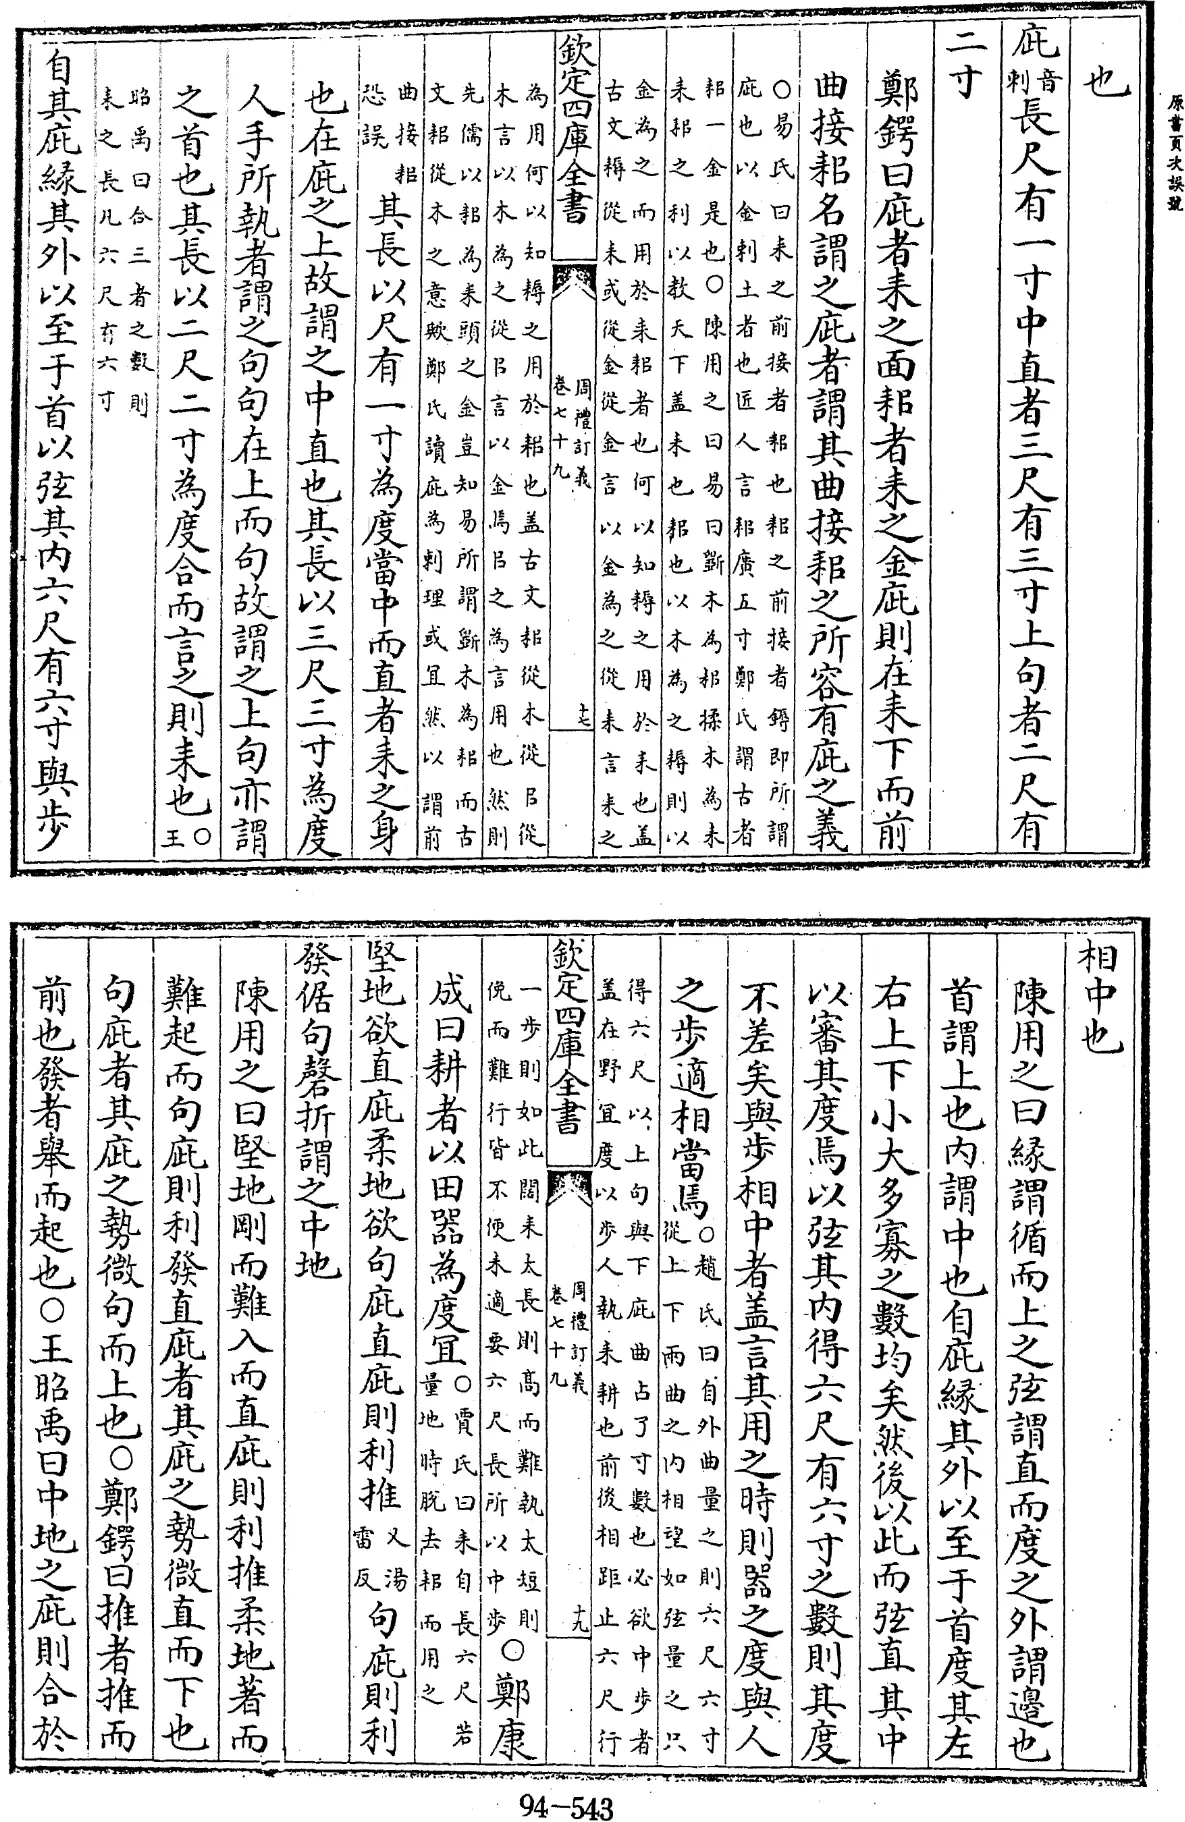 原書頁次誤號
也
庇音刺長尺有一寸中直者三尺有三寸上句者二尺有
二寸
鄭鍔曰庇者耒之面耜者耒之金庇則在耒下而前
曲接耜名謂之庇者謂其曲接耜之所容有庇之義
○易氏曰耒之前接者耜也耜之前接者鎛即所謂
庇也以金刺土者也匠人言耜廣五寸鄭氏謂古者
耜一金是也○陳用之曰易曰斵木為耜揉木為耒
耒耜之利以教天下蓋耒也耜也以木為之耨則以
金為之而用於耒耜者也何以知耨之用於耒也蓋
古文耨從耒或從金從金言以金為之從耒言耒之
欽定四庫全書
周禮訂義
卷七十九
十七
為用何以知耨之用於耜也蓋古文耜從木從㠯從
木言以木為之從㠯言以金焉㠯之為言用也然則
先儒以耜為耒頭之金豈知易所謂斵木為耜而古
文耜從木之意歟鄭氏讀庇為刺理或宜然以謂前
曲接耜
恐誤
其長以尺有一寸為度當中而直者耒之身
也在庇之上故謂之中直也其長以三尺三寸為度
人手所執者謂之句句在上而句故謂之上句亦謂
之首也其長以二尺二寸為度合而言之則耒也○王
昭禹曰合三者之數則
耒之長凡六尺有六寸
自其庇緣其外以至于首以弦其内六尺有六寸與步
相中也
陳用之曰緣謂循而上之弦謂直而度之外謂邉也
首謂上也内謂中也自庇緣其外以至于首度其左
右上下小大多寡之數均矣然後以此而弦直其中
以審其度焉以弦其内得六尺有六寸之數則其度
不差矣與步相中者蓋言其用之時則器之度與人
之步適相當焉
○趙氏曰自外曲量之則六尺六寸
從上下兩曲之内相望如弦量之只
得六尺以上句與下庇曲占了寸數也必欲中步者
蓋在野宜度以步人執耒耕也前後相距止六尺行
欽定四庫全書
周禮訂義
卷七十九
十九
一步則如此闊耒太長則髙而難執太短則
俛而難行皆不便耒適要六尺長所以中歩
○鄭康
成曰耕者以田器為度宜
○賈氏曰耒自長六尺若
量地時脱去耜而用之
堅地欲直庇柔地欲句庇直庇則利推
又湯
雷反
句庇則利
發倨句磬折謂之中地
陳用之曰堅地剛而難入而直庇則利推柔地著而
難起而句庇則利發直庇者其庇之勢微直而下也
句庇者其庇之勢微句而上也○鄭鍔曰推者推而
前也發者舉而起也○王昭禹曰中地之庇則合於
94-543